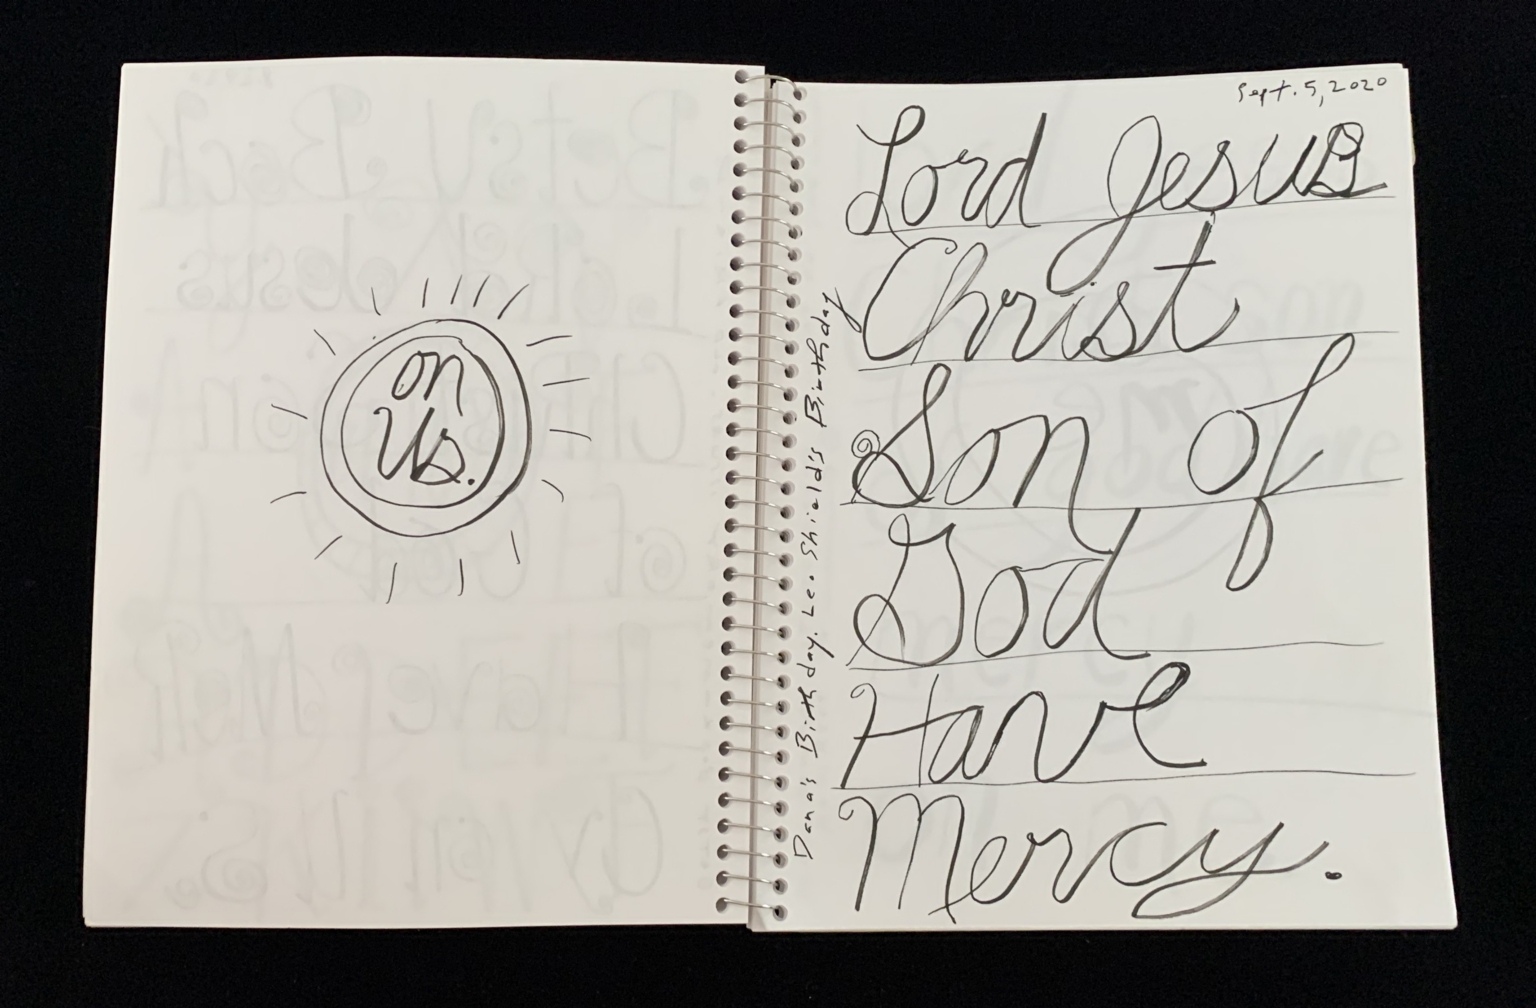 on
Us.
Sept. 5, 2020
Lord Jesus
Christ
Son of
God
Have
Mercy.
Dana's Birthday. Leo Shield's Birthday